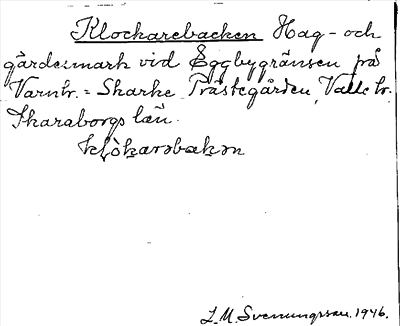 Klockarebacken Hag- och
gärdesmark vid Eggbygränsen på
Varnhr. = Skarke Prästegården, Valle hr.
Skaraborgs län.
klòkarəbakən
S. M. Svenungsson. 1946.